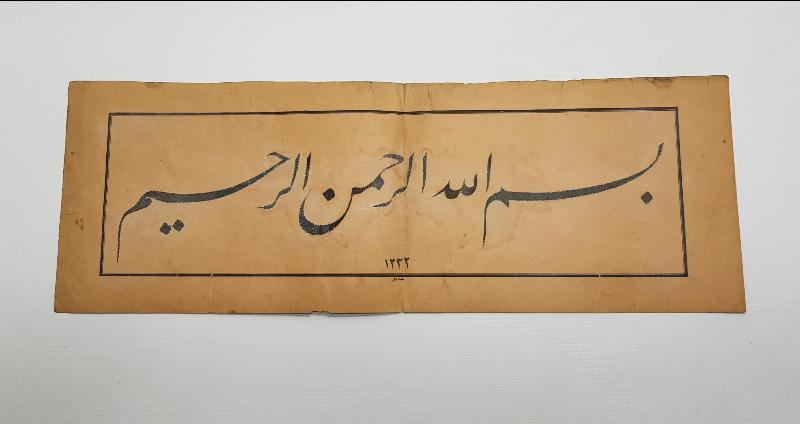 بسم الله الرحمن الرحيم
١٣٣٢